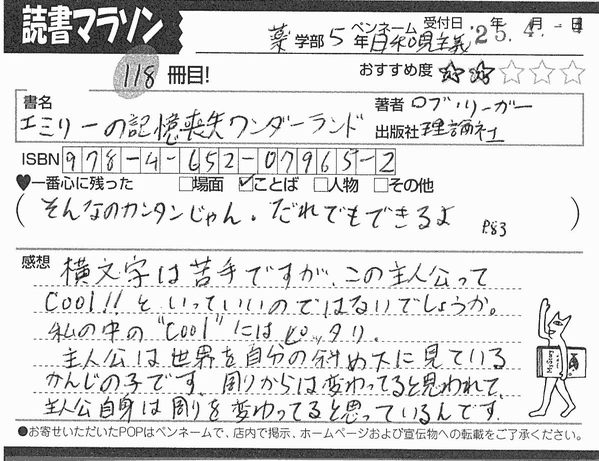 読書マラソン
薬 学部 5 年 ペンネーム 日和見主義 受付日 '25.年4.月-4日
118 冊目!
おすすめ度 ☆☆☆☆☆
書名 エミリーの記憶喪失ワンダーランド
著者 ロブ・リーガー
出版社 理論社
ISBN 978-4-652-07965-2
♥一番心に残った □場面 ☑ことば □人物 □その他
(そんなのカンタンじゃん。だれでもできるよ P.83)
感想 横文字は苦手ですが、この主人公って
Cool!! といっていいのではないでしょうか。
私の中の"Cool"にはピッタリ。
主人公は世界を自分の斜め下に見ている
かんじの子です。周りからは変わってると思われて、
主人公自身は周りを変わってると思っているんです。
●お寄せいただいたPOPはペンネームで、店内で掲示、ホームページおよび宣伝物への転載をご了承ください。